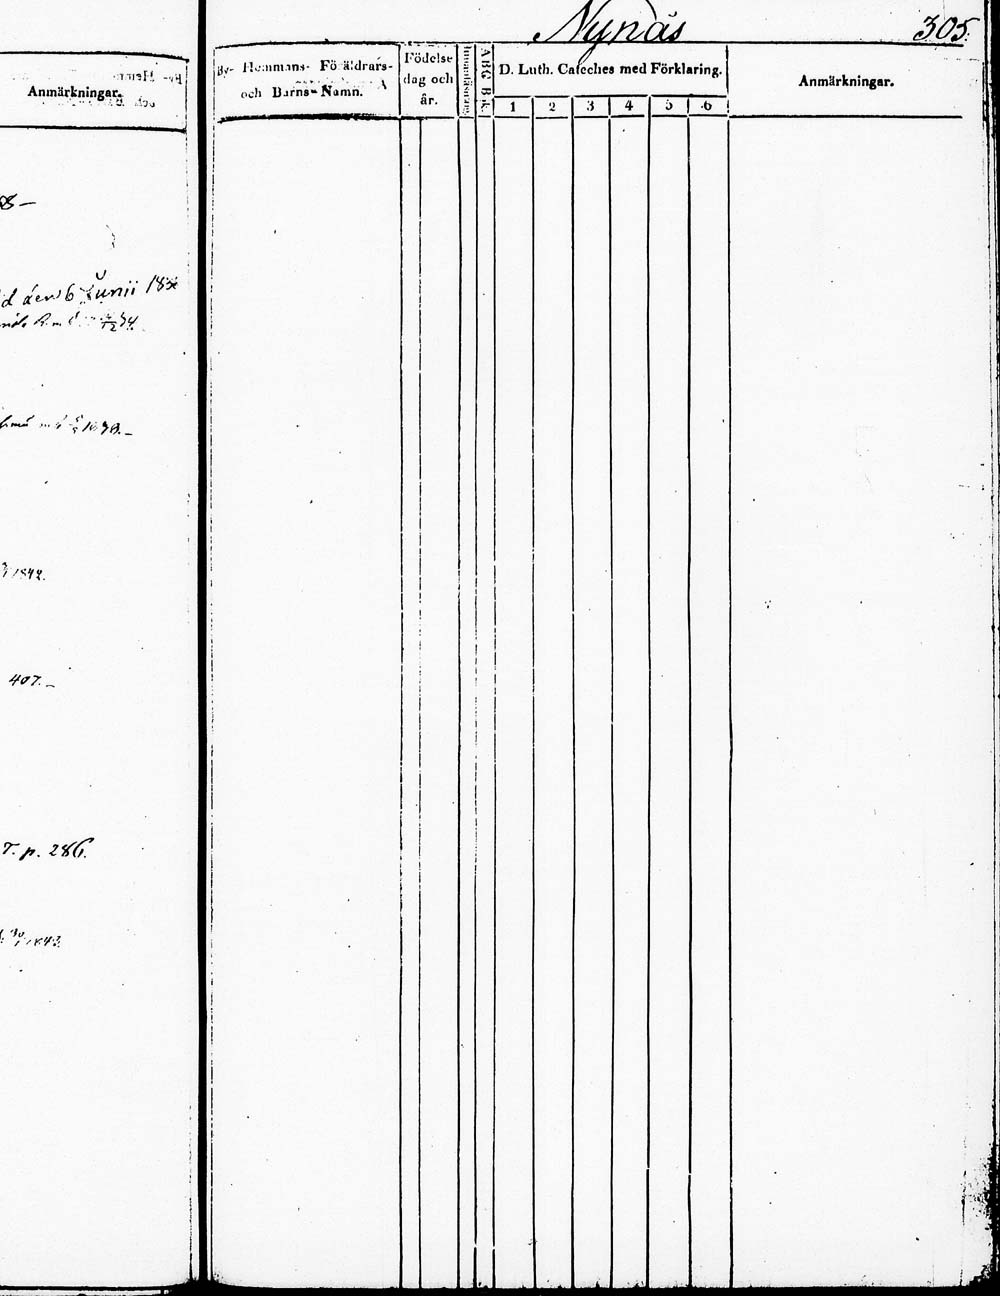 Anmärkningar.
88 –
d den 6 Junii 183
1842.
407. –
T. p. 286.
1843.
Nynäs
305.
By- Hemmans- Föräldrars-
och Barns-Namn.
Födelse
dag och
år.
Innanläsning
ABC Bok.
D. Luth. Cateches med Förklaring.
1 2 3 4 5 6
Anmärkningar.